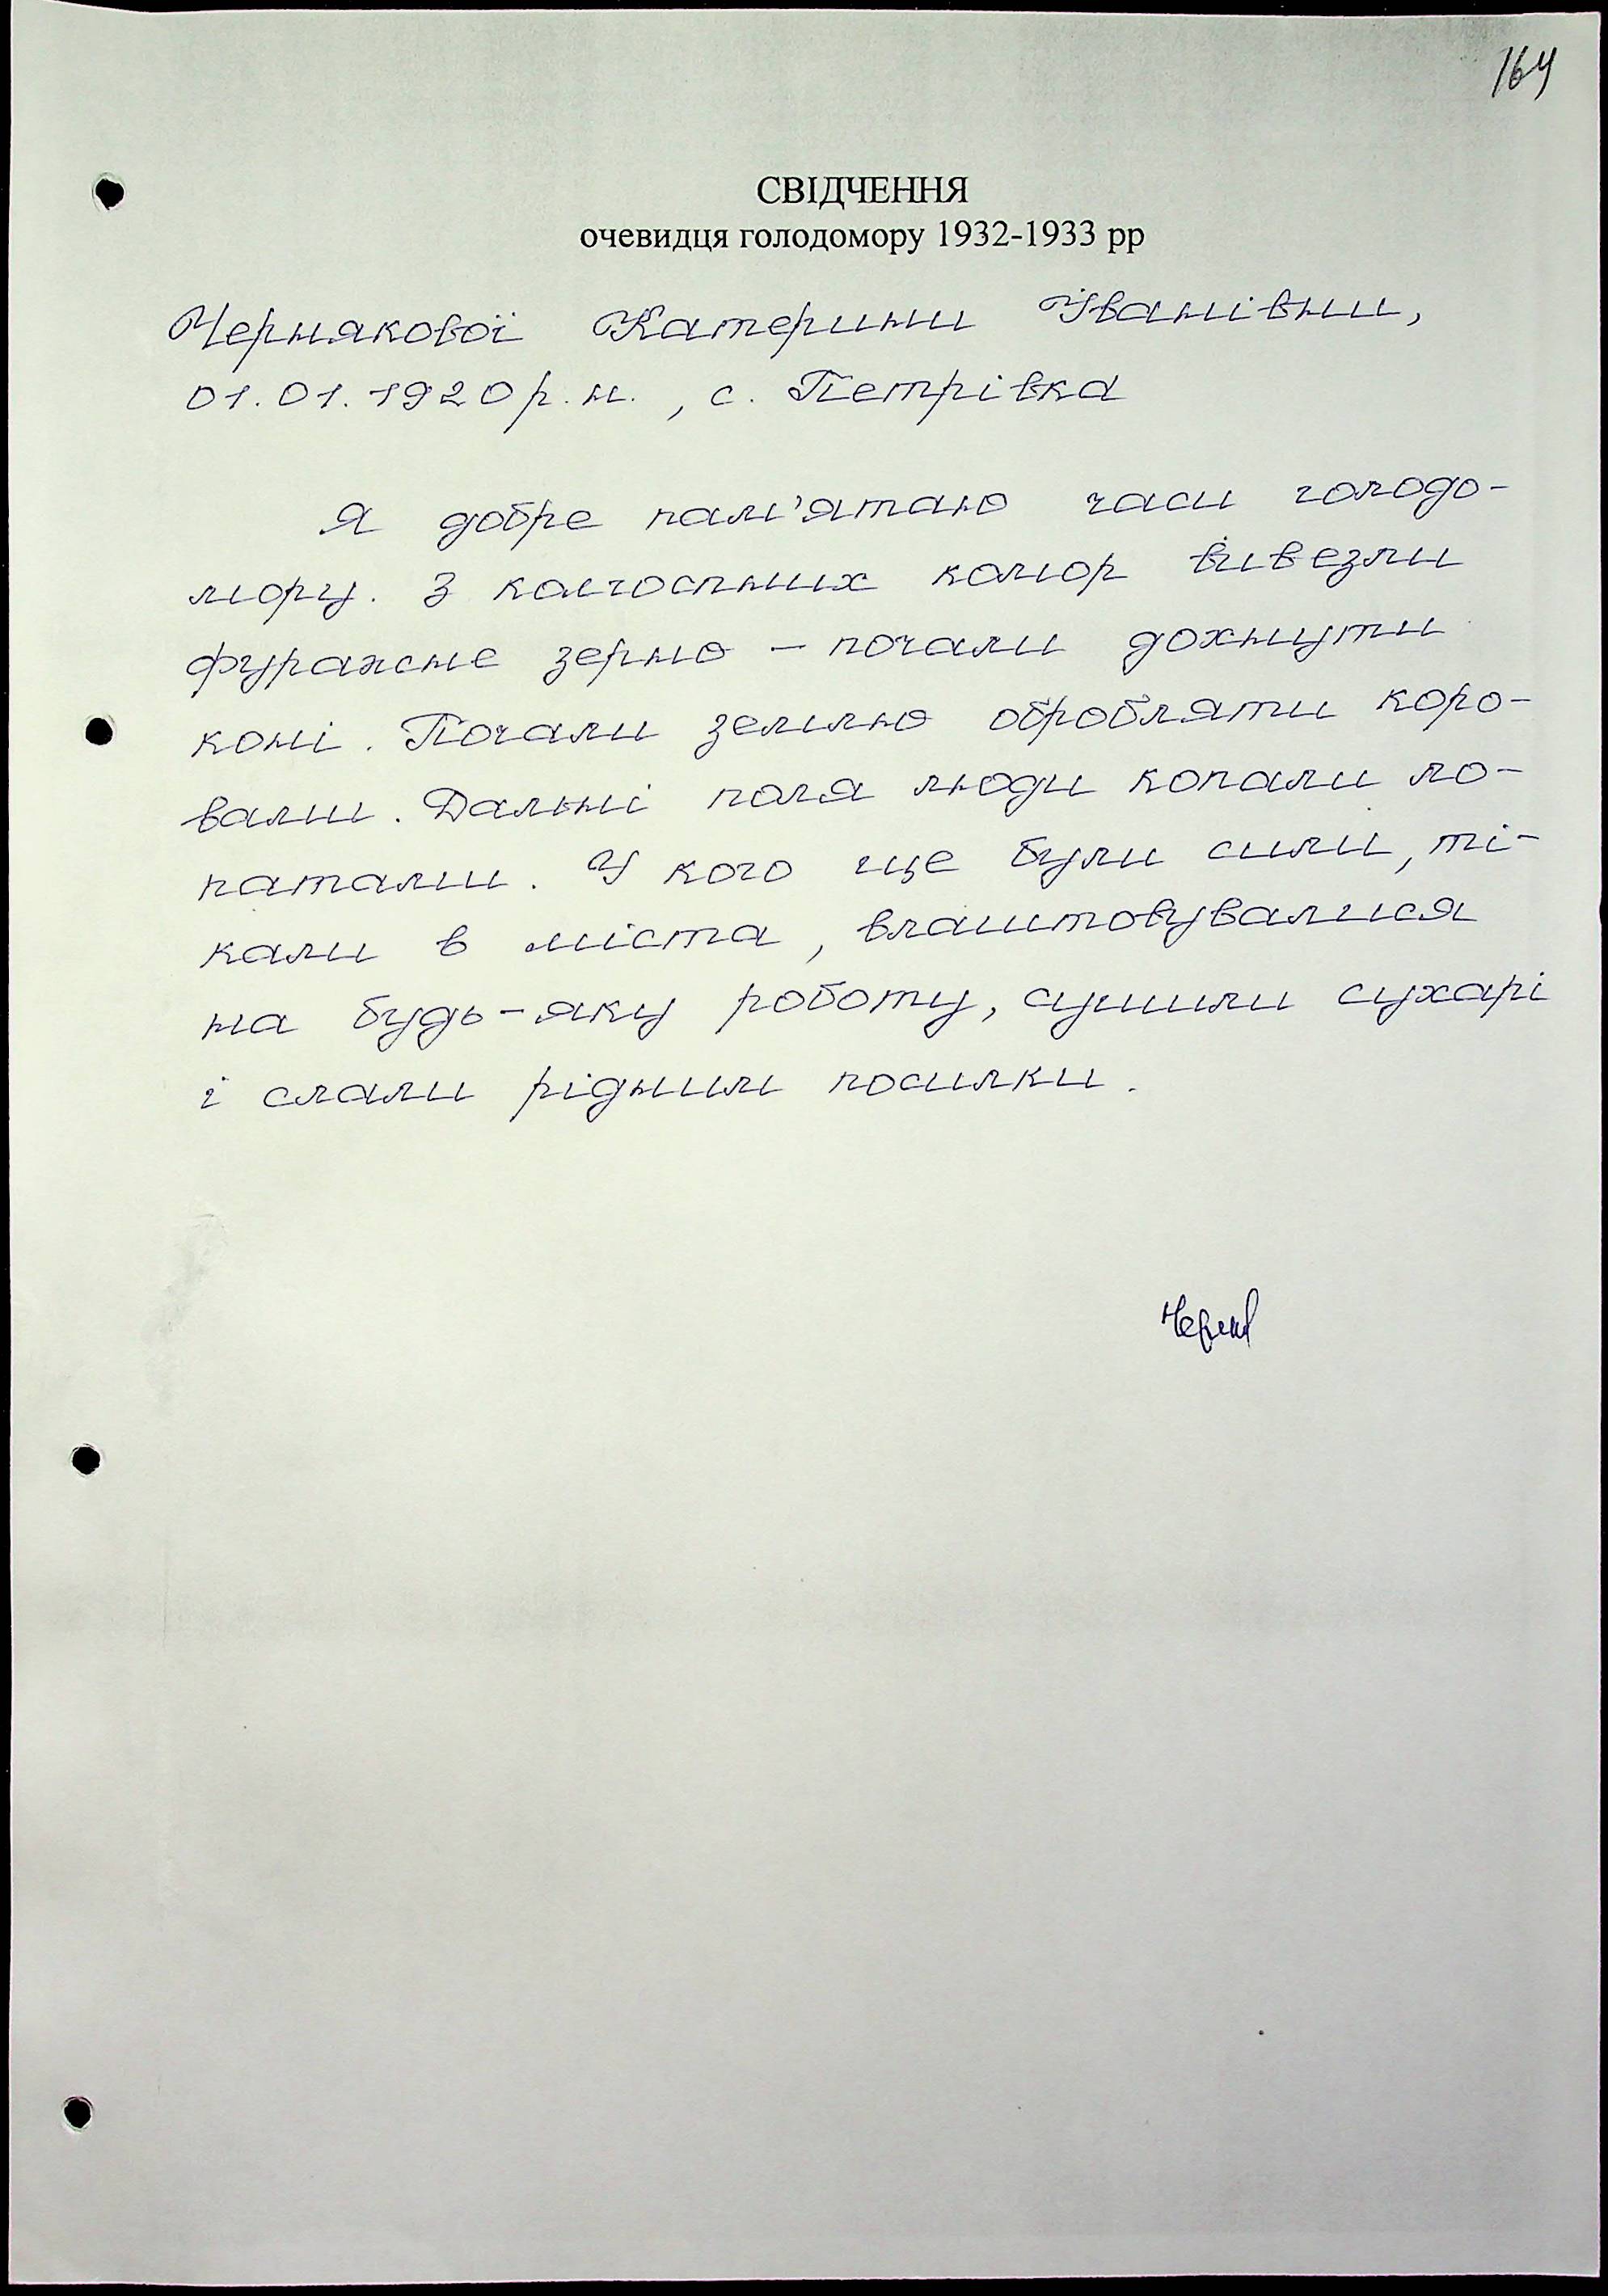 164
СВІДЧЕННЯ
очевидця голодомору 1932-1933 рр
Чернякової Катерини Іванівни,
01.01.1920 р.н., с. Петрівка
Я добре пам'ятаю часи голодо-
мору. З колгоспних комор вивезли
фуражне зерно – почали дохнути
коні. Почали землю обробляти коро-
вами. Дальні поля люди копали ло-
патами. У кого ще були сили, ті-
кали в міста, влаштовувалися
на будь-яку роботу, сушили сухарі
і слали рідним посилки.